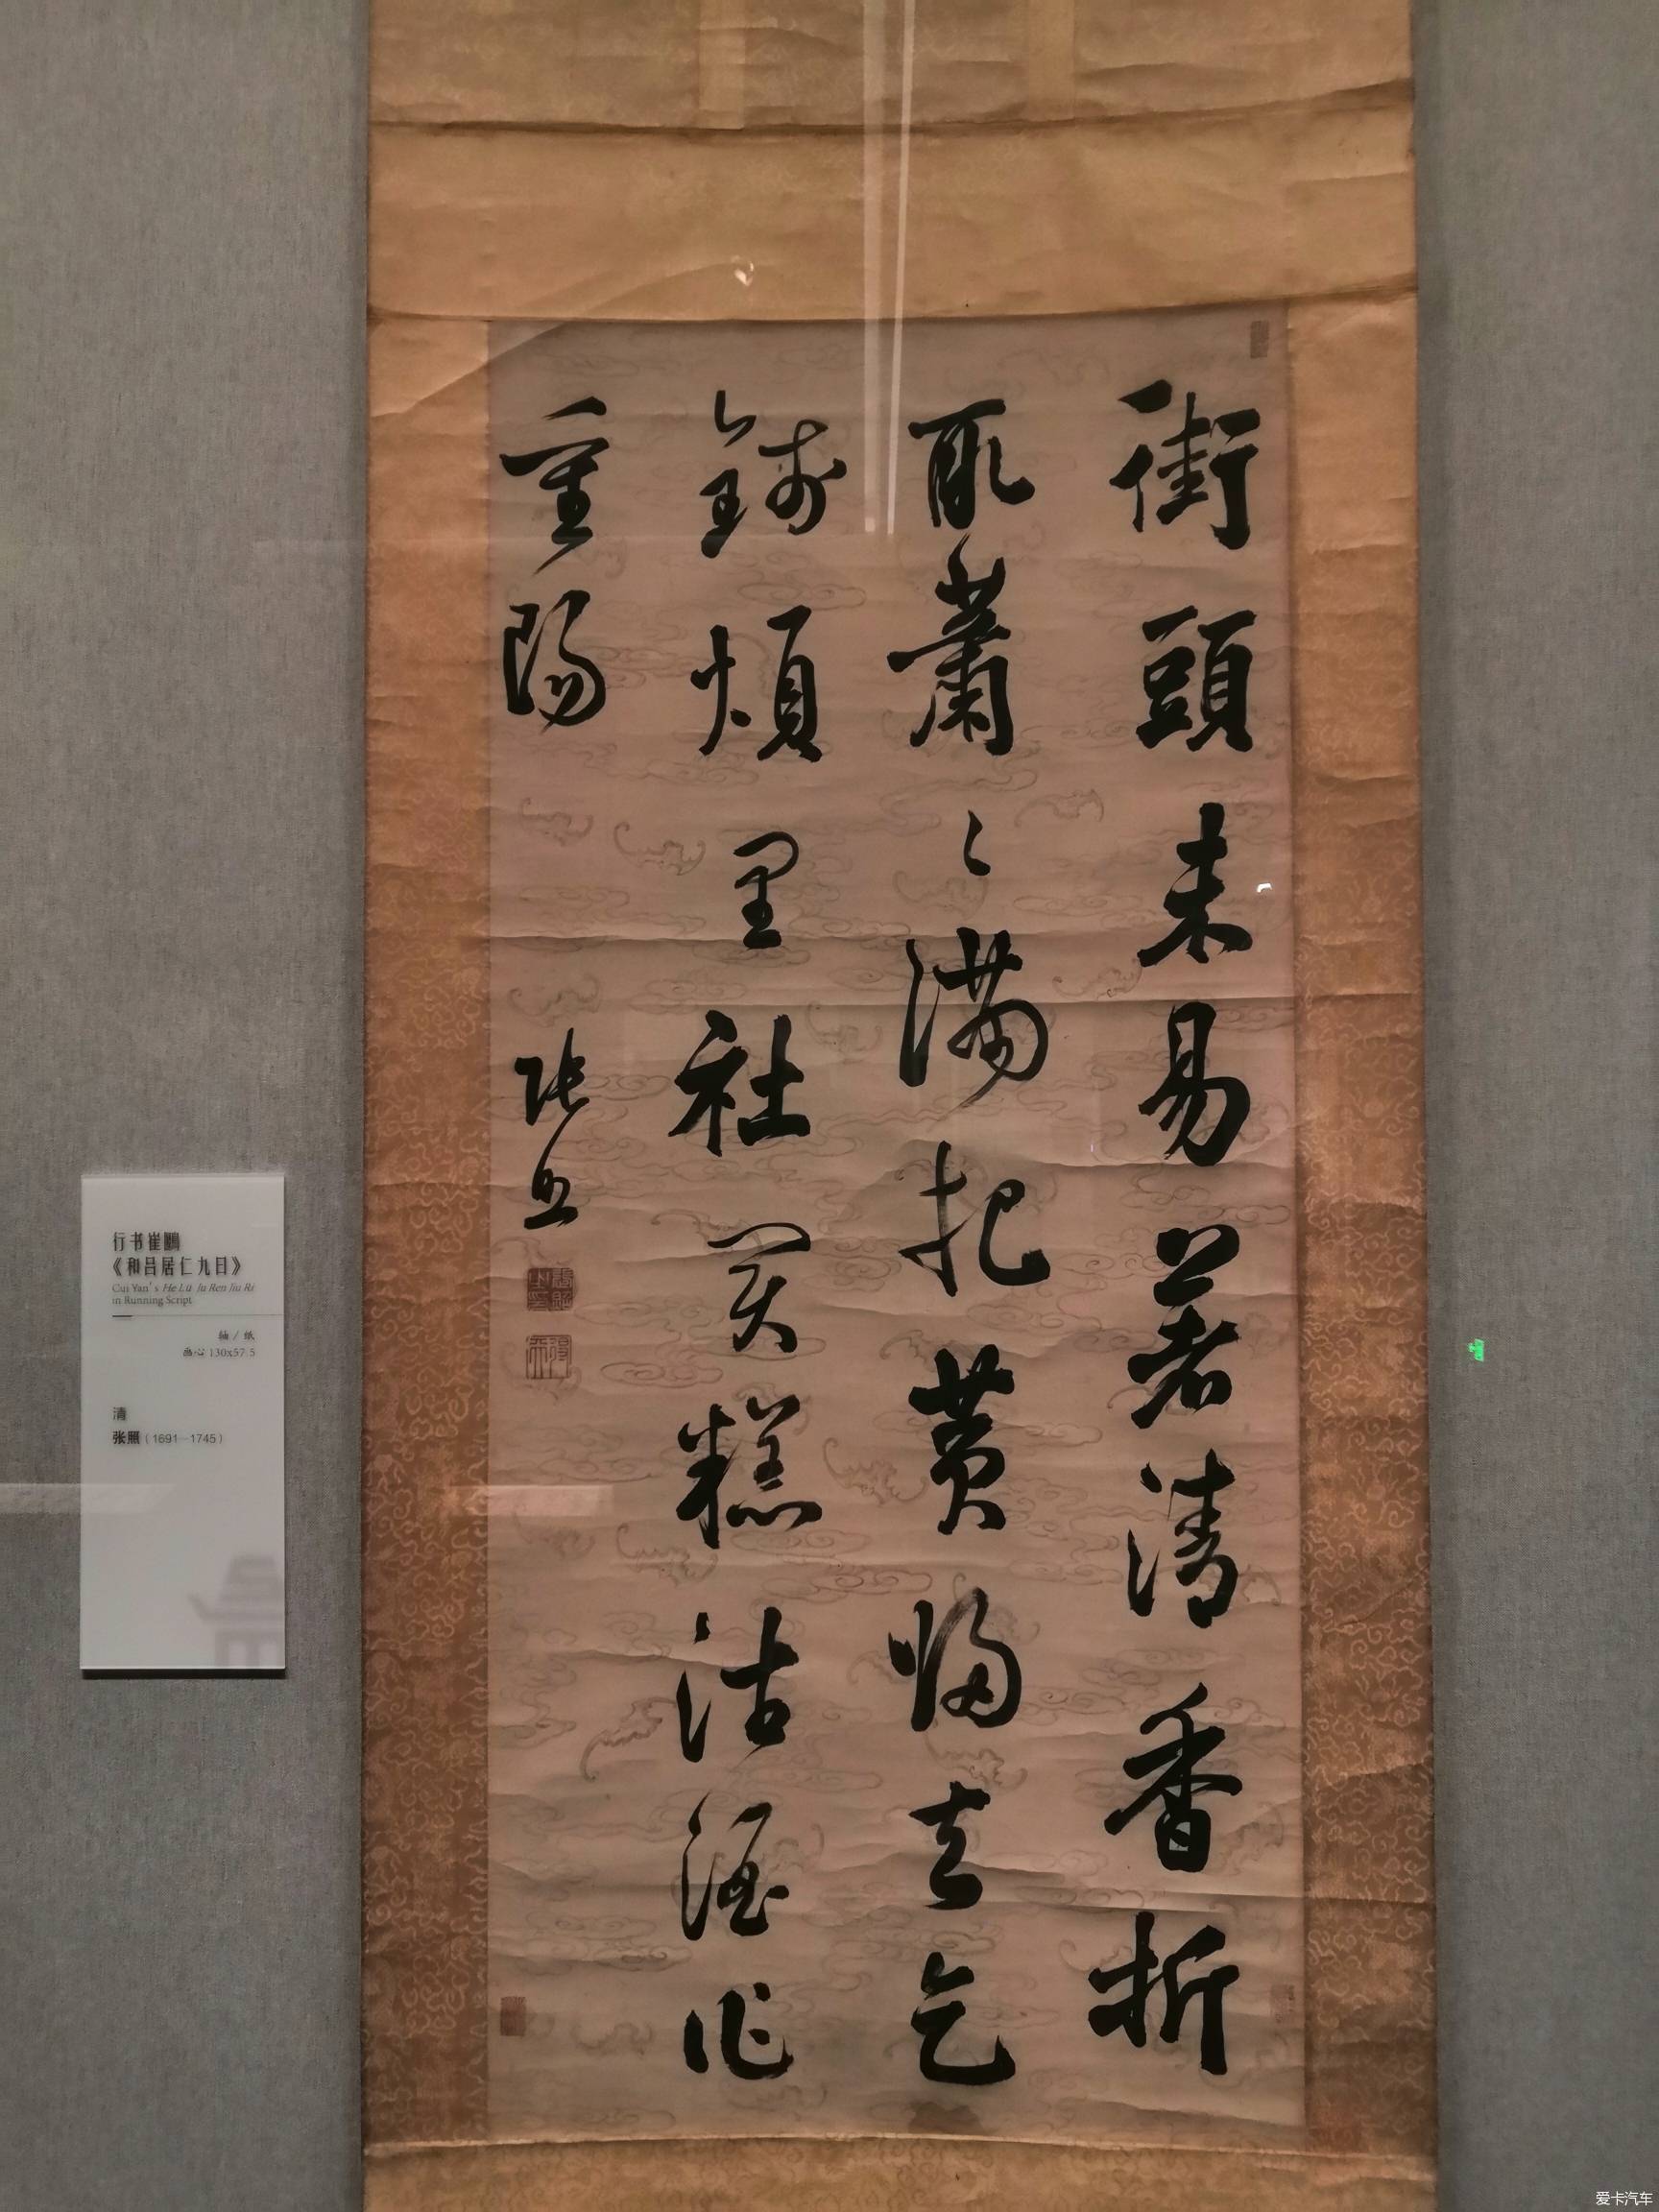 街頭未易著清香折
取蕭〻滿把黃歸去乞
錢煩里社買糕沽酒作
重陽
張照
行书崔鶠
《和吕居仁九日》
Cui Yan's He Lü Ju Ren Jiu Ri
in Running Script
轴／纸
画心 130x57.5
清
张照（1691—1745）
爱卡汽车